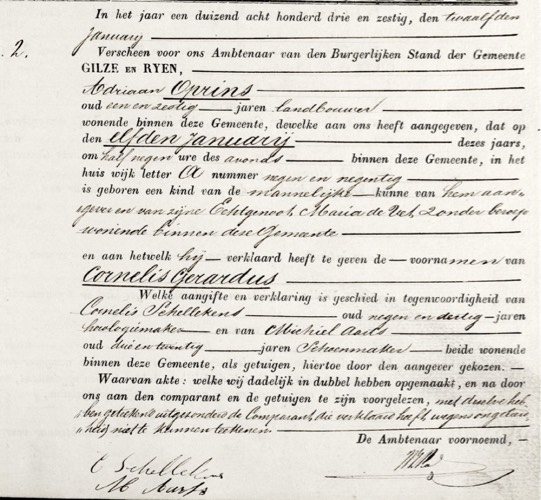 In het jaar een duizend acht honderd drie en zestig, den twaalfden
January
2.
Verscheen voor ons Ambtenaar van den Burgerlijken Stand der Gemeente
GILZE EN RYEN,
Adriaan Oprins
oud een en zestig jaren landbouwer
wonende binnen deze Gemeente, dewelke aan ons heeft aangegeven, dat op
den elfden January dezes jaars,
om half negen ure des avonds binnen deze Gemeente, in het
huis wijk letter A nummer negen en negentig
is geboren een kind van de mannelijke kunne van hem aan-
gever en van zijne Echtgenoot, Maria de Vet, zonder beroep
wonende binnen deze Gemeente
en aan hetwelk hij verklaard heeft te geven de voornamen van
Cornelis Gerardus
Welke aangifte en verklaring is geschied in tegenwoordigheid van
Cornelis Schellekens oud negen en dertig jaren
horologiemaker en van Michiel Aarts
oud drie en twintig jaren Schoenmaker beide wonende
binnen deze Gemeente, als getuigen, hiertoe door den aangever gekozen.
Waarvan akte: welke wij dadelijk in dubbel hebben opgemaakt, en na door
ons aan den comparant en de getuigen te zijn voorgelezen, met dezelve heb-
ben getekend uitgezonderd de Comparant, die verklaard heeft, wegens ongeleerd-
heid niet te kunnen teekenen.
De Ambtenaar voornoemd,
C Schellek
M Aarts